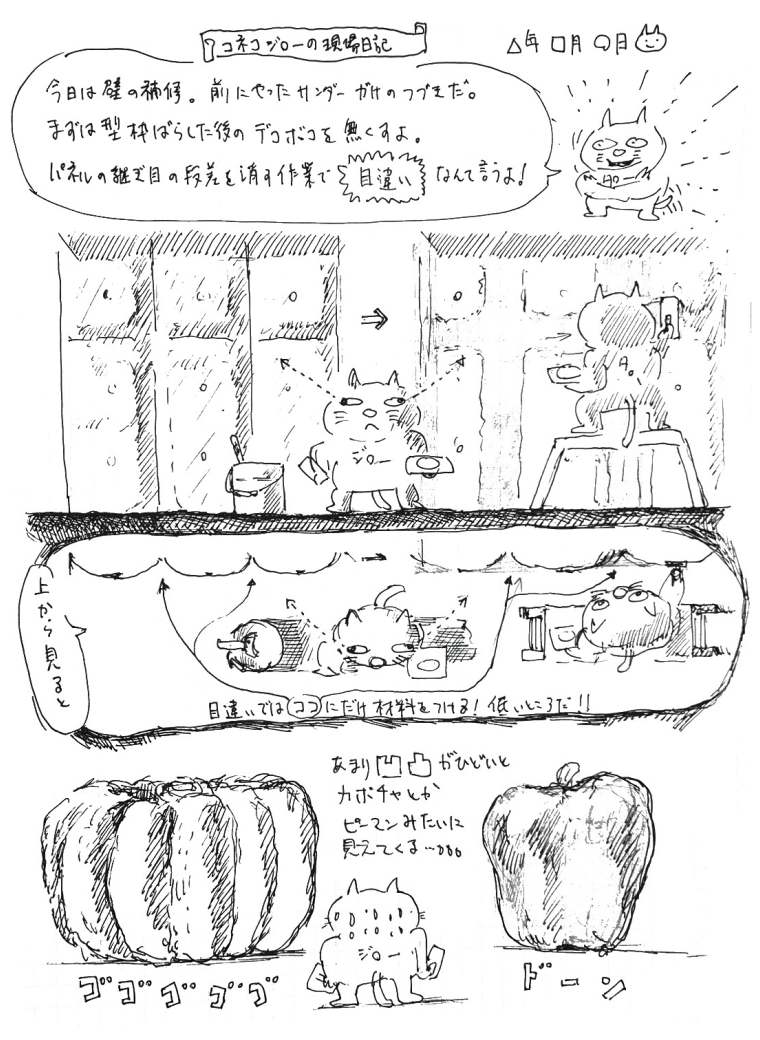 コネコジローの現場日記
△年 □月 ○日
今日は壁の補修。前にやったサンダーがけのつづきだ。
まずは型枠ばらした後のデコボコを無くすよ。
パネルの継ぎ目の段差を消す作業で 目違い なんて言うよ!
ジロー
上から見ると
目違いではココにだけ材料をつける! 低いところだ!!
あまり凹凸がひどいと
カボチャとか
ピーマンみたいに
見えてくる…。。。
ジロー
ゴゴゴゴゴ
ドーン